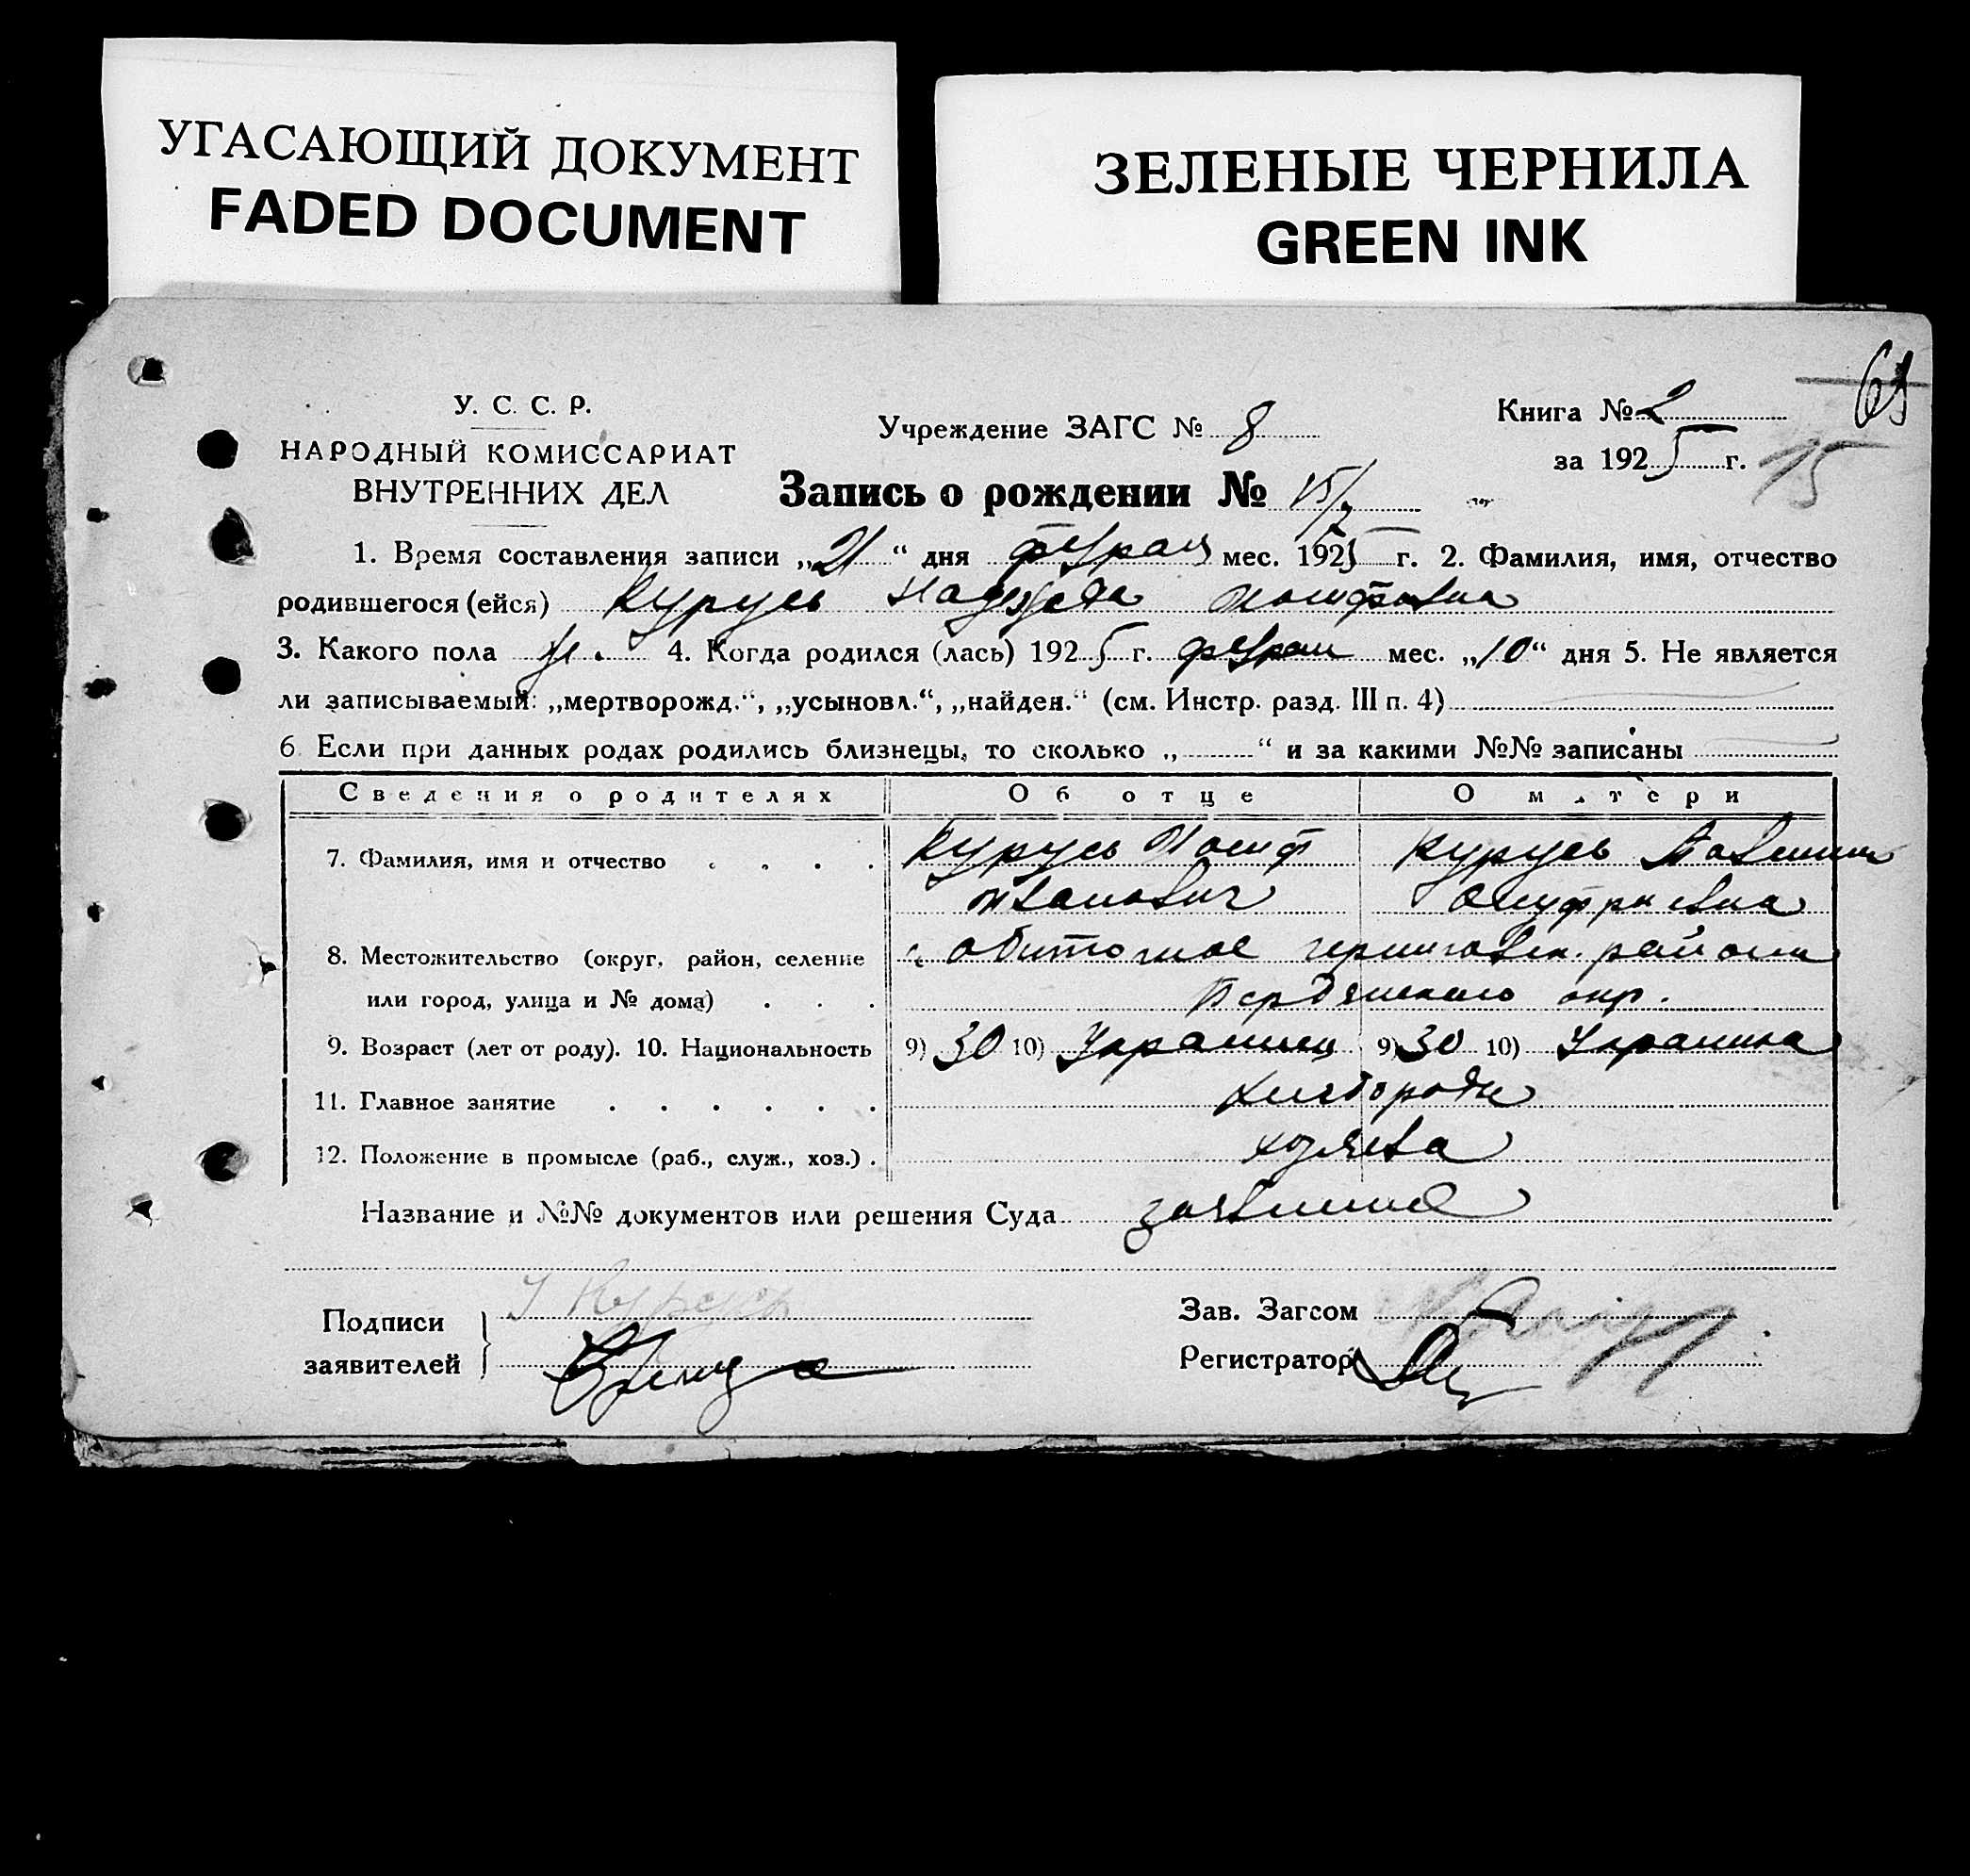 УГАСАЮЩИЙ ДОКУМЕНТ
FADED DOCUMENT
ЗЕЛЕНЫЕ ЧЕРНИЛА
GREEN INK
У. С. С. Р.
НАРОДНЫЙ КОМИССАРИАТ
ВНУТРЕННИХ ДЕЛ
Учреждение ЗАГС № 8
Книга № 2
за 1925 г.
15
Запись о рождении № 15/
1. Время составления записи „21“ дня мес. 1925 г. 2. Фамилия, имя, отчество
родившегося (ейся) Курусь Надежда Иосифовна
3. Какого пола ж. 4. Когда родился (лась) 1925 г. мес. „10“ дня 5. Не является
ли записываемый: „мертворожд.“, „усыновл.“, „найден.“ (см. Инстр. разд. III п. 4)
6 Если при данных родах родились близнецы, то сколько „ “ и за какими №№ записаны
Сведения о родителях Об отце О матери
7. Фамилия, имя и отчество Курусь Иосиф Курусь
Иванович Онуфриевна
8. Местожительство (округ, район, селение с. Обиточное района
или город, улица и № дома) Бердянского окр.
9. Возраст (лет от роду). 10. Национальность 9) 30 10) Украинец 9) 30 10) Украинка
11. Главное занятие
12. Положение в промысле (раб., служ., хоз.) хозяева
Название и №№ документов или решения Суда заявление
Подписи
заявителей
Курусь
Зав. Загсом
Регистратор